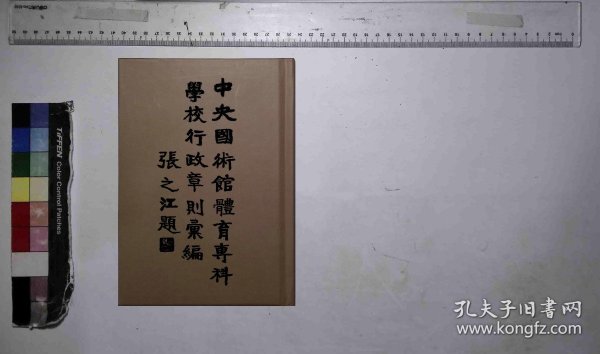 中央國術館體育專科
學校行政章則彙編
張之江題
TIFFEN Color Control Patches
孔夫子旧书网
www.kongfz.com